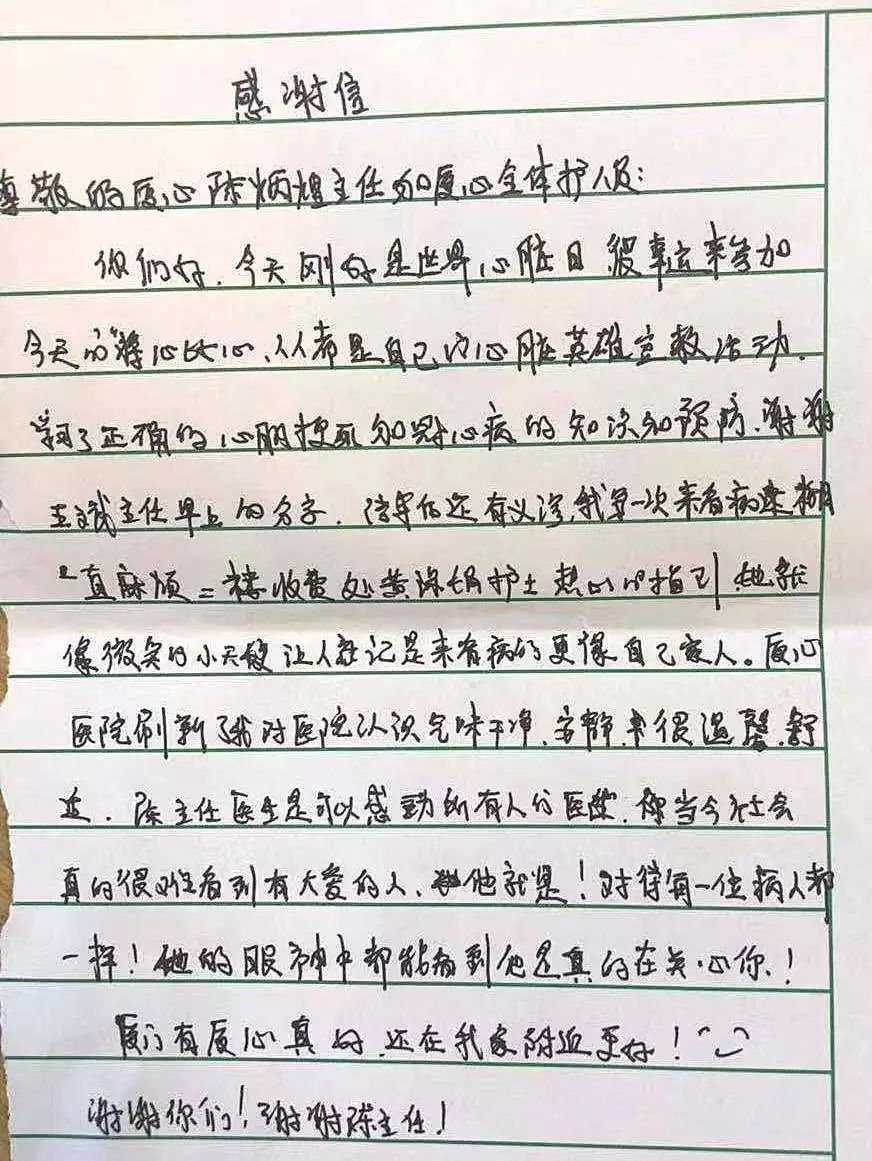 感谢信
尊敬的厦心陈炳煌主任和厦心全体护人员:
你们好.今天刚好是世界心脏日 很幸运来参加
今天的"将心比心、人人都是自己的心脏英雄宣教活动.
学习了正确的心肌梗死和冠心病的知识和预防、谢谢
主任早上的分字.陪伴的还有义诊,我第一次来看病迷糊
真麻烦 被收费处黄 娟护士热心的指引 她就
像微笑的小天使让人忘记是来看病的更像自己家人。厦心
医院刷新了我对医院认识气味干净、安静、很温馨、舒
适.陈主任医生是可以感动所有人的医 .当今社会
真的很难看到有大爱的人、他就是!对待每一位病人都
一样!他的眼神中都能看到他是真的在关心你、!
厦门有厦心真好.还在我家附近更好!
谢谢你们!谢谢陈主任!